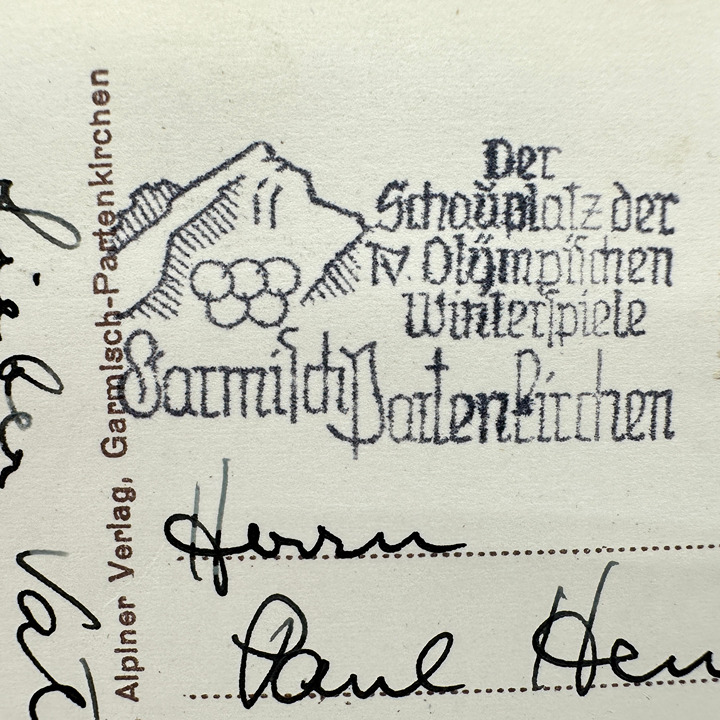 Der
Schauplatz der
IV. Olympischen
Winterspiele
Garmisch Partenkirchen
Herrn
Paul
Alpiner Verlag, Garmisch-Partenkirchen
Lieber